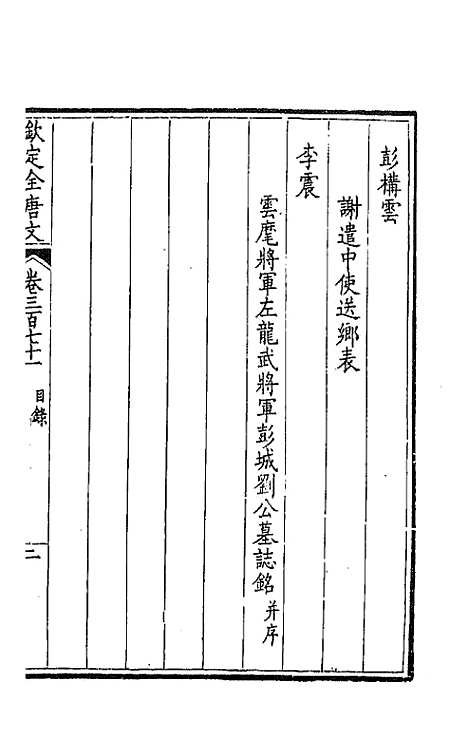 彭構雲
謝遣中使送鄉表
李震
雲麾將軍左龍武將軍彭城劉公墓誌銘并序
欽定全唐文
卷三百七十一
目錄
二